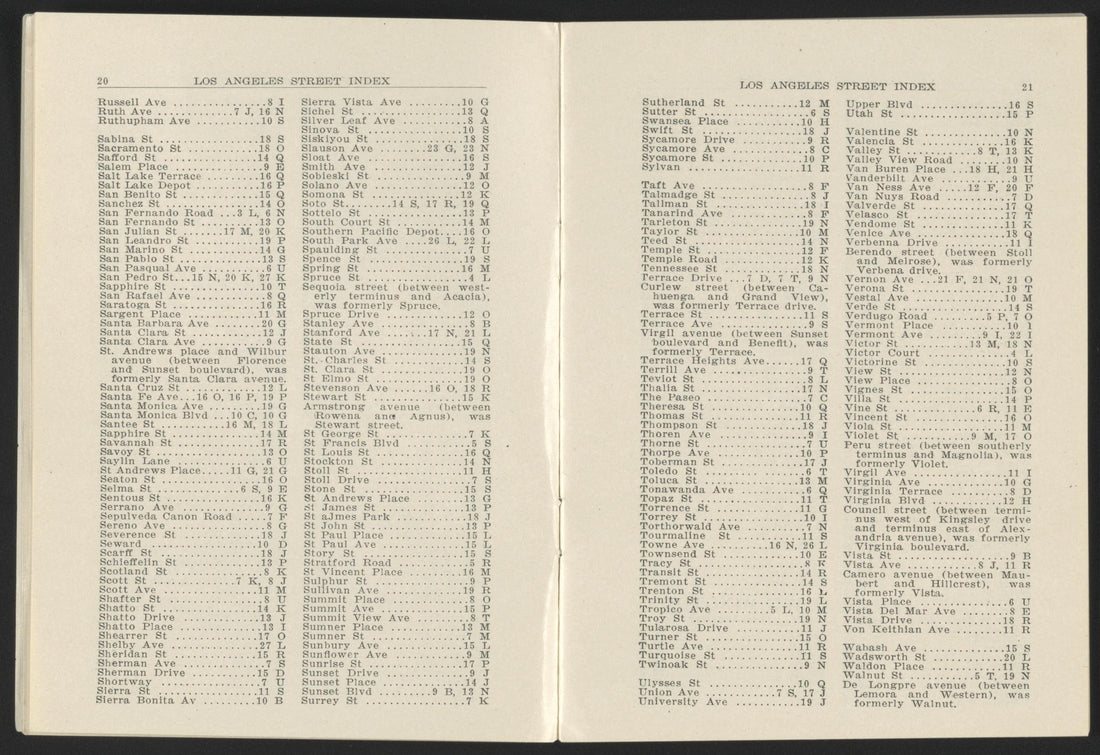 20
LOS ANGELES STREET INDEX
Russell Ave ..............8 I
Ruth Ave ............7 J, 16 N
Ruthupham Ave ..........10 S
Sabina St ................18 S
Sacramento St ............18 O
Safford St ...............14 Q
Salem Place ..............9 E
Salt Lake Terrace .........16 Q
Salt Lake Depot ..........16 P
San Benito St ............15 Q
Sanchez St ...............14 O
San Fernando Road ...3 L, 6 N
San Fernando St ..........13 O
San Julian St .......17 M, 20 K
San Leandro St ...........19 P
San Marino St ............14 G
San Pablo St .............13 S
San Pasqual Ave ...........6 U
San Pedro St...15 N, 20 K, 27 K
Sapphire St ..............10 T
San Rafael Ave ............8 Q
Saratoga St ..............16 R
Sargent Place ............11 M
Santa Barbara Ave ........20 G
Santa Clara St ...........12 J
Santa Clara Ave ...........9 G
St. Andrews place and Wilbur
avenue (between Florence
and Sunset boulevard), was
formerly Santa Clara avenue.
Santa Cruz St ............12 L
Santa Fe Ave...16 O, 16 P, 19 P
Santa Monica Ave .........19 G
Santa Monica Blvd ...10 C, 10 G
Santee St ...........16 M, 18 L
Sapphire St ..............14 M
Savannah St ..............17 R
Savoy St .................13 O
Saylin Lane ...............6 U
St Andrews Place.....11 G, 21 G
Seaton St ................16 O
Selma St .............6 S, 9 E
Sentous St ...............16 K
Serrano Ave ...............9 G
Sepulveda Canon Road .....7 F
Sereno Ave ................8 G
Severence St .............18 J
Seward ...................10 D
Scarff St ................18 J
Schieffelin St ...........13 P
Scotland St ...............8 K
Scott St .............7 K, 8 J
Scott Ave ................11 M
Shafter St ................8 U
Shatto St ................14 K
Shatto Drive .............13 J
Shatto Place .............13 I
Shearrer St ..............17 O
Shelby Ave ...............27 L
Sheridan St ..............15 R
Sherman Ave ...............7 S
Sherman Drive ............15 D
Shortway ..................7 U
Sierra St ................11 S
Sierra Bonita Av .........10 B
Sierra Vista Ave .........10 G
Sichel St ................13 Q
Silver Leaf Ave ...........8 A
Sinova St ................10 S
Siskiyou St ..............18 S
Slauson Ave .......23 G, 23 N
Sloat Ave ................16 S
Smith Ave ................12 J
Sobieski St ...............9 M
Solano Ave ...............12 O
Somona St ................12 K
Soto St.......14 S, 17 R, 19 Q
Sottelo St ...............13 P
South Court St ...........14 M
Southern Pacific Depot....16 O
South Park Ave ....26 L, 22 L
Spaulding St ..............7 U
Spence St ................19 S
Spring St ................16 M
Spruce St .................4 L
Sequoia street (between west-
erly terminus and Acacia),
was formerly Spruce.
Spruce Drive .............12 O
Stanley Ave ...............8 B
Stanford Ave .......17 N, 21 L
State St .................15 Q
Stauton Ave ..............19 N
St. Charles St ...........14 S
St. Clara St .............19 O
St Elmo St ...............19 O
Stevenson Ave ......16 O, 18 R
Stewart St ...............15 K
Armstrong avenue (between
Rowena and Agnus), was
Stewart street.
St George St ..............7 K
St Francis Blvd ...........5 S
St Louis St ..............16 Q
Stockton St ..............14 N
Stoll St .................11 H
Stoll Drive ...............7 S
Stone St .................15 S
St Andrews Place .........13 G
St James St ..............13 P
St aJmes Park ............18 J
St John St ...............13 P
St Paul Place ............15 L
St Paul Ave ..............15 L
Story St .................15 S
Stratford Road ............5 R
St Vincent Place .........16 M
Sulphur St ................9 P
Sullivan Ave .............19 R
Summit Place ..............8 O
Summit Ave ...............15 P
Summit View Ave ...........8 T
Sumner Place .............13 M
Sumner St .................7 M
Sunbury Ave ..............15 L
Sunflower Ave .............9 M
Sunrise St ...............17 P
Sunset Drive ..............9 J
Sunset Place .............14 J
Sunset Blvd ........9 B, 13 N
Surrey St .................7 K
LOS ANGELES STREET INDEX
21
Sutherland St ............12 M
Sutter St .................6 S
Swansea Place ............10 H
Swift St .................18 J
Sycamore Drive ............9 R
Sycamore Ave ..............8 C
Sycamore St ..............10 P
Sylvan ...................11 R
Taft Ave ..................8 F
Talmadge St ...............8 J
Tallman St ...............18 I
Tanarind Ave ..............8 F
Tarleton St ..............19 N
Taylor St ................10 M
Teed St ..................14 N
Temple St ................12 F
Temple Road ..............12 K
Tennessee St .............18 N
Terrace Drive ...7 D, 7 T, 9 N
Curlew street (between Ca-
huenga and Grand View),
was formerly Terrace drive.
Terrace St ...............11 S
Terrace Ave ...............9 S
Virgil avenue (between Sunset
boulevard and Benefit), was
formerly Terrace.
Terrace Heights Ave......17 Q
Terrill Ave ...............9 T
Teviot St .................8 L
Thalia St ................17 N
The Paseo .................7 C
Theresa St ...............10 Q
Thomas St ................11 R
Thompson St ..............18 J
Thoren Ave ................9 I
Thorne St .................7 U
Thorpe Ave ...............10 P
Toberman St ..............17 J
Toledo St .................6 T
Toluca St ................13 M
Tonawanda Ave .............6 Q
Topaz St .................11 T
Torrence St ..............11 G
Torrey St ................10 I
Torthorwald Ave ...........7 N
Tourmaline St ............11 S
Towne Ave ..........16 N, 26 L
Townsend St ..............10 E
Tracy St ..................8 K
Transit St ...............14 R
Tremont St ...............14 S
Trenton St ...............16 L
Trinity St ...............19 L
Tropico Ave .........5 L, 10 M
Troy St ..................19 N
Tularosa Drive ...........11 J
Turner St ................15 O
Turtle Ave ...............11 R
Turquoise St .............11 S
Twinoak St ................9 N
Ulysses St ...............10 Q
Union Ave ...........7 S, 17 J
University Ave ...........19 J
Upper Blvd ...............16 S
Utah St ..................15 P
Valentine St .............10 N
Valencia St ..............16 K
Valley St ...........8 T, 13 K
Valley View Road .........10 N
Van Buren Place ...18 H, 21 H
Vanderbilt Ave ............9 U
Van Ness Ave .....12 F, 20 F
Van Nuys Road .............7 D
Valverde St ..............17 Q
Velasco St ...............17 T
Vendome St ...............11 K
Venice Ave ...............18 Q
Verbenna Drive ...........11 I
Berendo street (between Stoll
and Melrose), was formerly
Verbena drive.
Vernon Ave ...21 F, 21 N, 21 O
Verona St ................19 T
Vestal Ave ...............10 M
Verde St .................14 S
Verdugo Road .........5 P, 7 O
Vermont Place ............10 1
Vermont Ave .........9 I, 22 I
Victor St ..........13 M, 18 N
Victor Court ..............4 L
Victorine St .............10 S
View St ..................12 N
View Place ................8 O
Vignes St ................15 O
Villa St .................14 P
Vine St .............6 R, 11 E
Vincent St ...............16 O
Viola St .................11 M
Violet St ...........9 M, 17 O
Peru street (between southerly
terminus and Magnolia), was
formerly Violet.
Virgil Ave ...............11 I
Virginia Ave .............10 G
Virginia Terrace ..........8 D
Virginia Blvd ............12 H
Council street (between termi-
nus west of Kingsley drive
and terminus east of Alex-
andria avenue), was formerly
Virginia boulevard.
Vista St ..................9 B
Vista Ave ...........8 J, 11 R
Camero avenue (between Mau-
bert and Hillcrest), was
formerly Vista.
Vista Place ...............6 U
Vista Del Mar Ave .........8 E
Vista Drive ..............18 R
Von Keithian Ave .........11 R
Wabash Ave ...............15 S
Wadsworth St .............20 L
Waldon Place .............11 R
Walnut St ...........5 T, 19 N
De Longpre avenue (between
Lemora and Western), was
formerly Walnut.